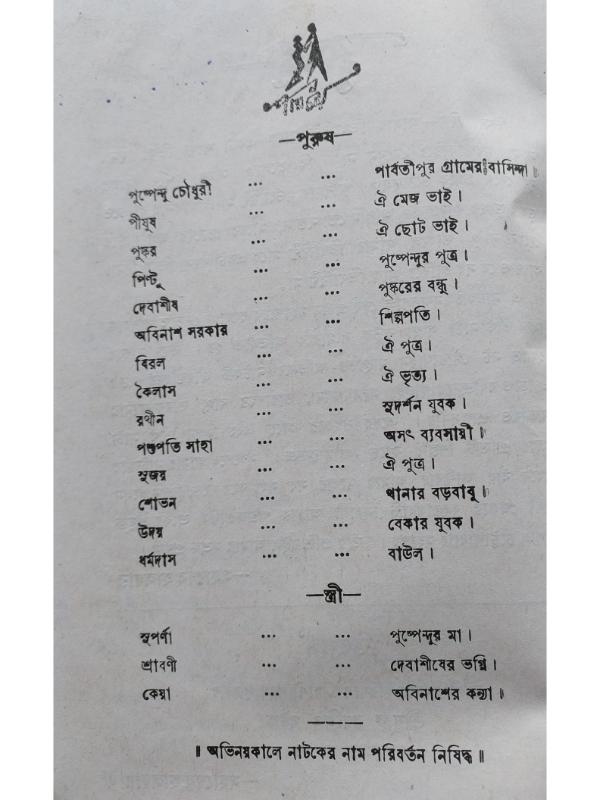 —পুরুষ—
পুষ্পেন্দু চৌধুরী ... ... পার্বতীপুর গ্রামের বাসিন্দা।
পীযূষ ... ... ঐ মেজ ভাই।
পুষ্কর ... ... ঐ ছোট ভাই।
পিন্টু ... ... পুষ্পেন্দুর পুত্র।
দেবাশীষ ... ... পুষ্করের বন্ধু।
অবিনাশ সরকার ... ... শিল্পপতি।
বিরল ... ... ঐ পুত্র।
কৈলাস ... ... ঐ ভৃত্য।
রথীন ... ... সুদর্শন যুবক।
পশুপতি সাহা ... ... অসৎ ব্যবসায়ী।
সুজয় ... ... ঐ পুত্র।
শোভন ... ... থানার বড়বাবু।
উদয় ... ... বেকার যুবক।
ধর্মদাস ... ... বাউল।
—স্ত্রী—
সুপর্ণা ... ... পুষ্পেন্দুর মা।
শ্রাবণী ... ... দেবাশীষের ভগ্নি।
কেয়া ... ... অবিনাশের কন্যা।
॥ অভিনয়কালে নাটকের নাম পরিবর্তন নিষিদ্ধ ॥